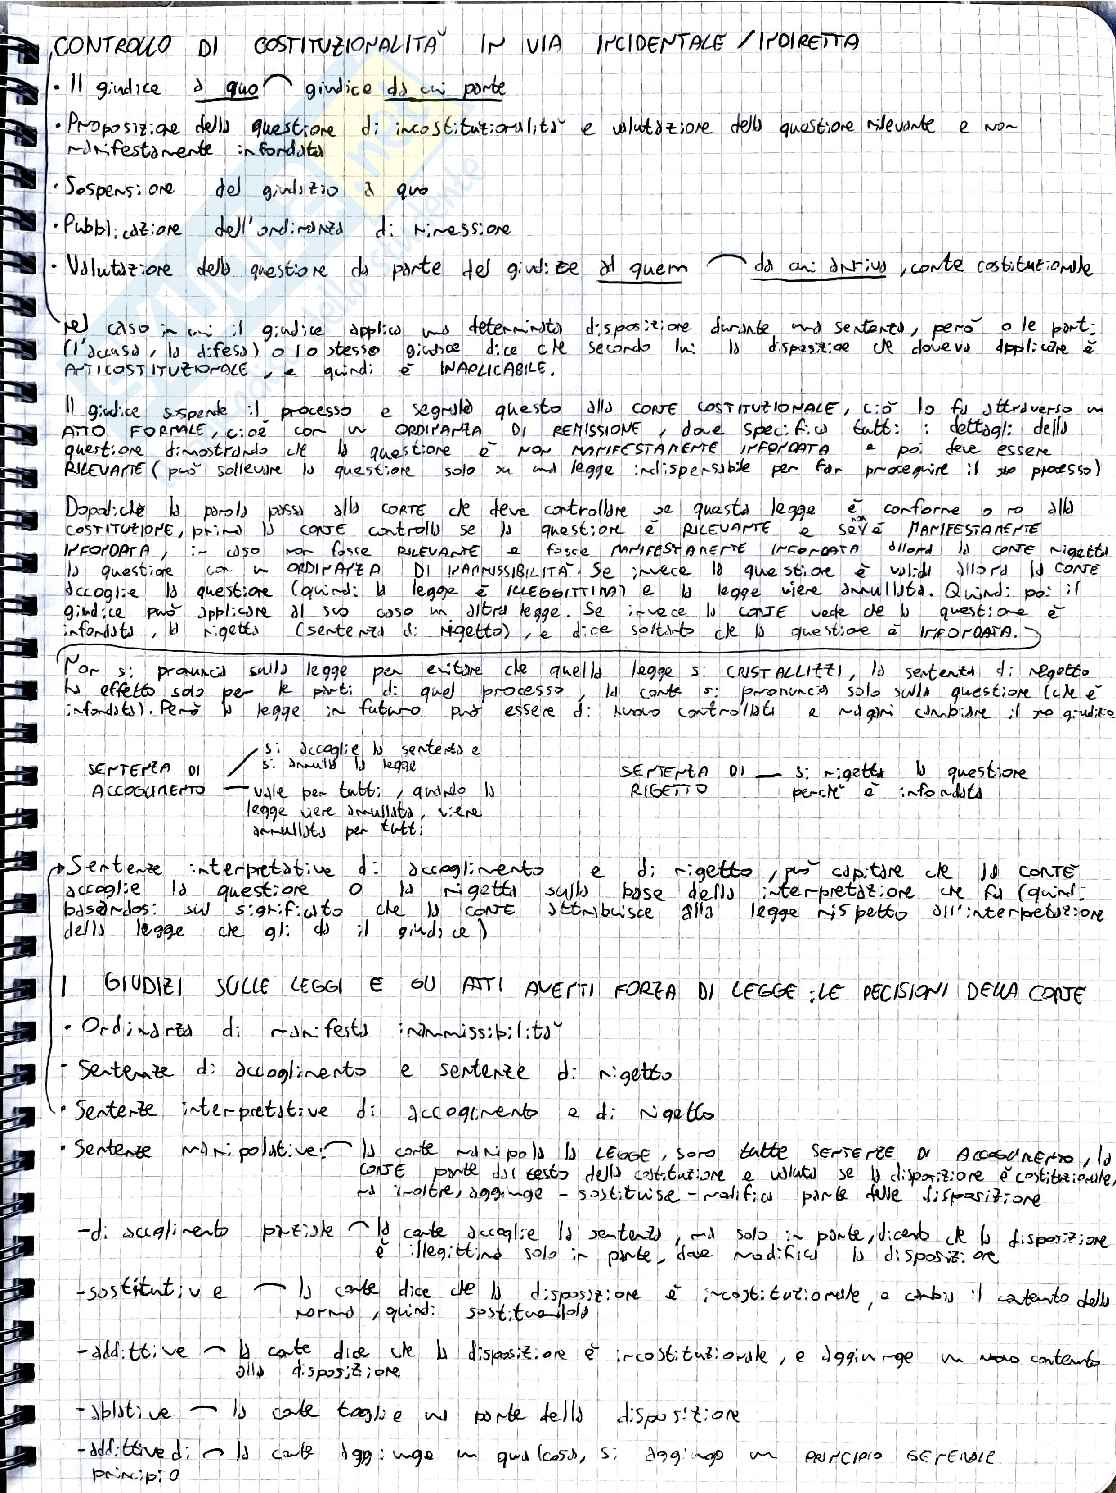 CONTROLLO DI COSTITUZIONALITÀ IN VIA INCIDENTALE/INDIRETTA
• Il giudice a quo giudice da cui parte
• Proposizione della questione di incostituzionalità e valutazione della questione rilevante e non
manifestamente infondata
• Sospensione del giudizio a quo
• Pubblicazione dell'ordinanza di rimessione
• Valutazione della questione da parte del giudice al quem da cui arriva, corte costituzionale
nel caso in cui il giudice applica una determinata disposizione durante una sentenza, però o le parti
(l'accusa, la difesa) o lo stesso giudice dice che secondo lui la disposizione che doveva applicare è
ANTICOSTITUZIONALE, e quindi è INAPLICABILE.
Il giudice sospende il processo e segnala questo alla CORTE COSTITUZIONALE, ciò lo fa attraverso un
ATTO FORMALE, cioè con un ORDINANZA DI REMISSIONE, dove specifica tutti i dettagli della
questione dimostrando che la questione è NON MANIFESTAMENTE INFONDATA e poi deve essere
RILEVANTE (può sollevare la questione solo su una legge indispensabile per far proseguire il suo processo)
Dopodiché la parola passa alla CORTE che deve controllare se questa legge è conforme o no alla
COSTITUZIONE, prima la CORTE controlla se la questione è RILEVANTE e se MANIFESTAMENTE
INFONDATA, in caso non fosse RILEVANTE e fosse MANIFESTAMENTE INFONDATA allora la CORTE rigetta
la questione con un ORDINANZA DI INAMMISSIBILITÀ. Se invece la questione è valida allora la CORTE
accoglie la questione (quindi la legge è ILLEGGITTIMA) e la legge viene annullata. Quindi poi il
giudice può applicare al suo caso un altra legge. Se invece la CORTE vede che la questione è
infondata, la rigetta (sentenza di rigetto), e dice soltanto che la questione è INFONDATA.
Non si pronuncia sulla legge per evitare che quella legge si CRISTALLIZZI, la sentenza di rigetto
ha effetto solo per le parti di quel processo, la corte si pronuncia solo sulla questione (che è
infondata). Però la legge in futuro può essere di nuovo controllata e magari cambiare il suo giudizio
SENTENZA DI ACCOGLIMENTO
si accoglie la sentenza e
si annulla la legge
vale per tutti, quando la
legge viene annullata, viene
annullata per tutti
SENTENZA DI RIGETTO
si rigetta la questione
perché è infondata
Sentenze interpretative di accoglimento e di rigetto, può capitare che la CORTE
accoglie la questione o la rigetta sulla base della interpretazione che fa (quindi
basandosi sul significato che la CORTE attribuisce alla legge rispetto all'interpretazione
della legge che gli da il giudice)
I GIUDIZI SULLE LEGGI E GLI ATTI AVENTI FORZA DI LEGGE: LE DECISIONI DELLA CORTE
• Ordinanza di manifesta inammissibilità
• Sentenze di accoglimento e sentenze di rigetto
• Sentenze interpretative di accoglimento e di rigetto
• Sentenze manipolative: la corte manipola la LEGGE, sono tutte SENTENZE DI ACCOGLIMENTO, la
CORTE parte dal testo della costituzione e valuta se la disposizione è costituzionale,
ma inoltre, aggiunge - sostituisce - modifica parte delle disposizione
-di accoglimento parziale la corte accoglie la sentenza, ma solo in parte, dicendo che la disposizione
è illegittima solo in parte, dove modifica la disposizione
-sostitutive la corte dice che la disposizione è incostituzionale, e cambia il contenuto della
norma, quindi sostituendola
-addittive la corte dice che la disposizione è incostituzionale, e aggiunge un nuovo contenuto
alla disposizione
-ablative la corte toglie una parte della disposizione
-addittive di principio la corte aggiunge un qualcosa, si aggiunge un PRINCIPIO GENERALE